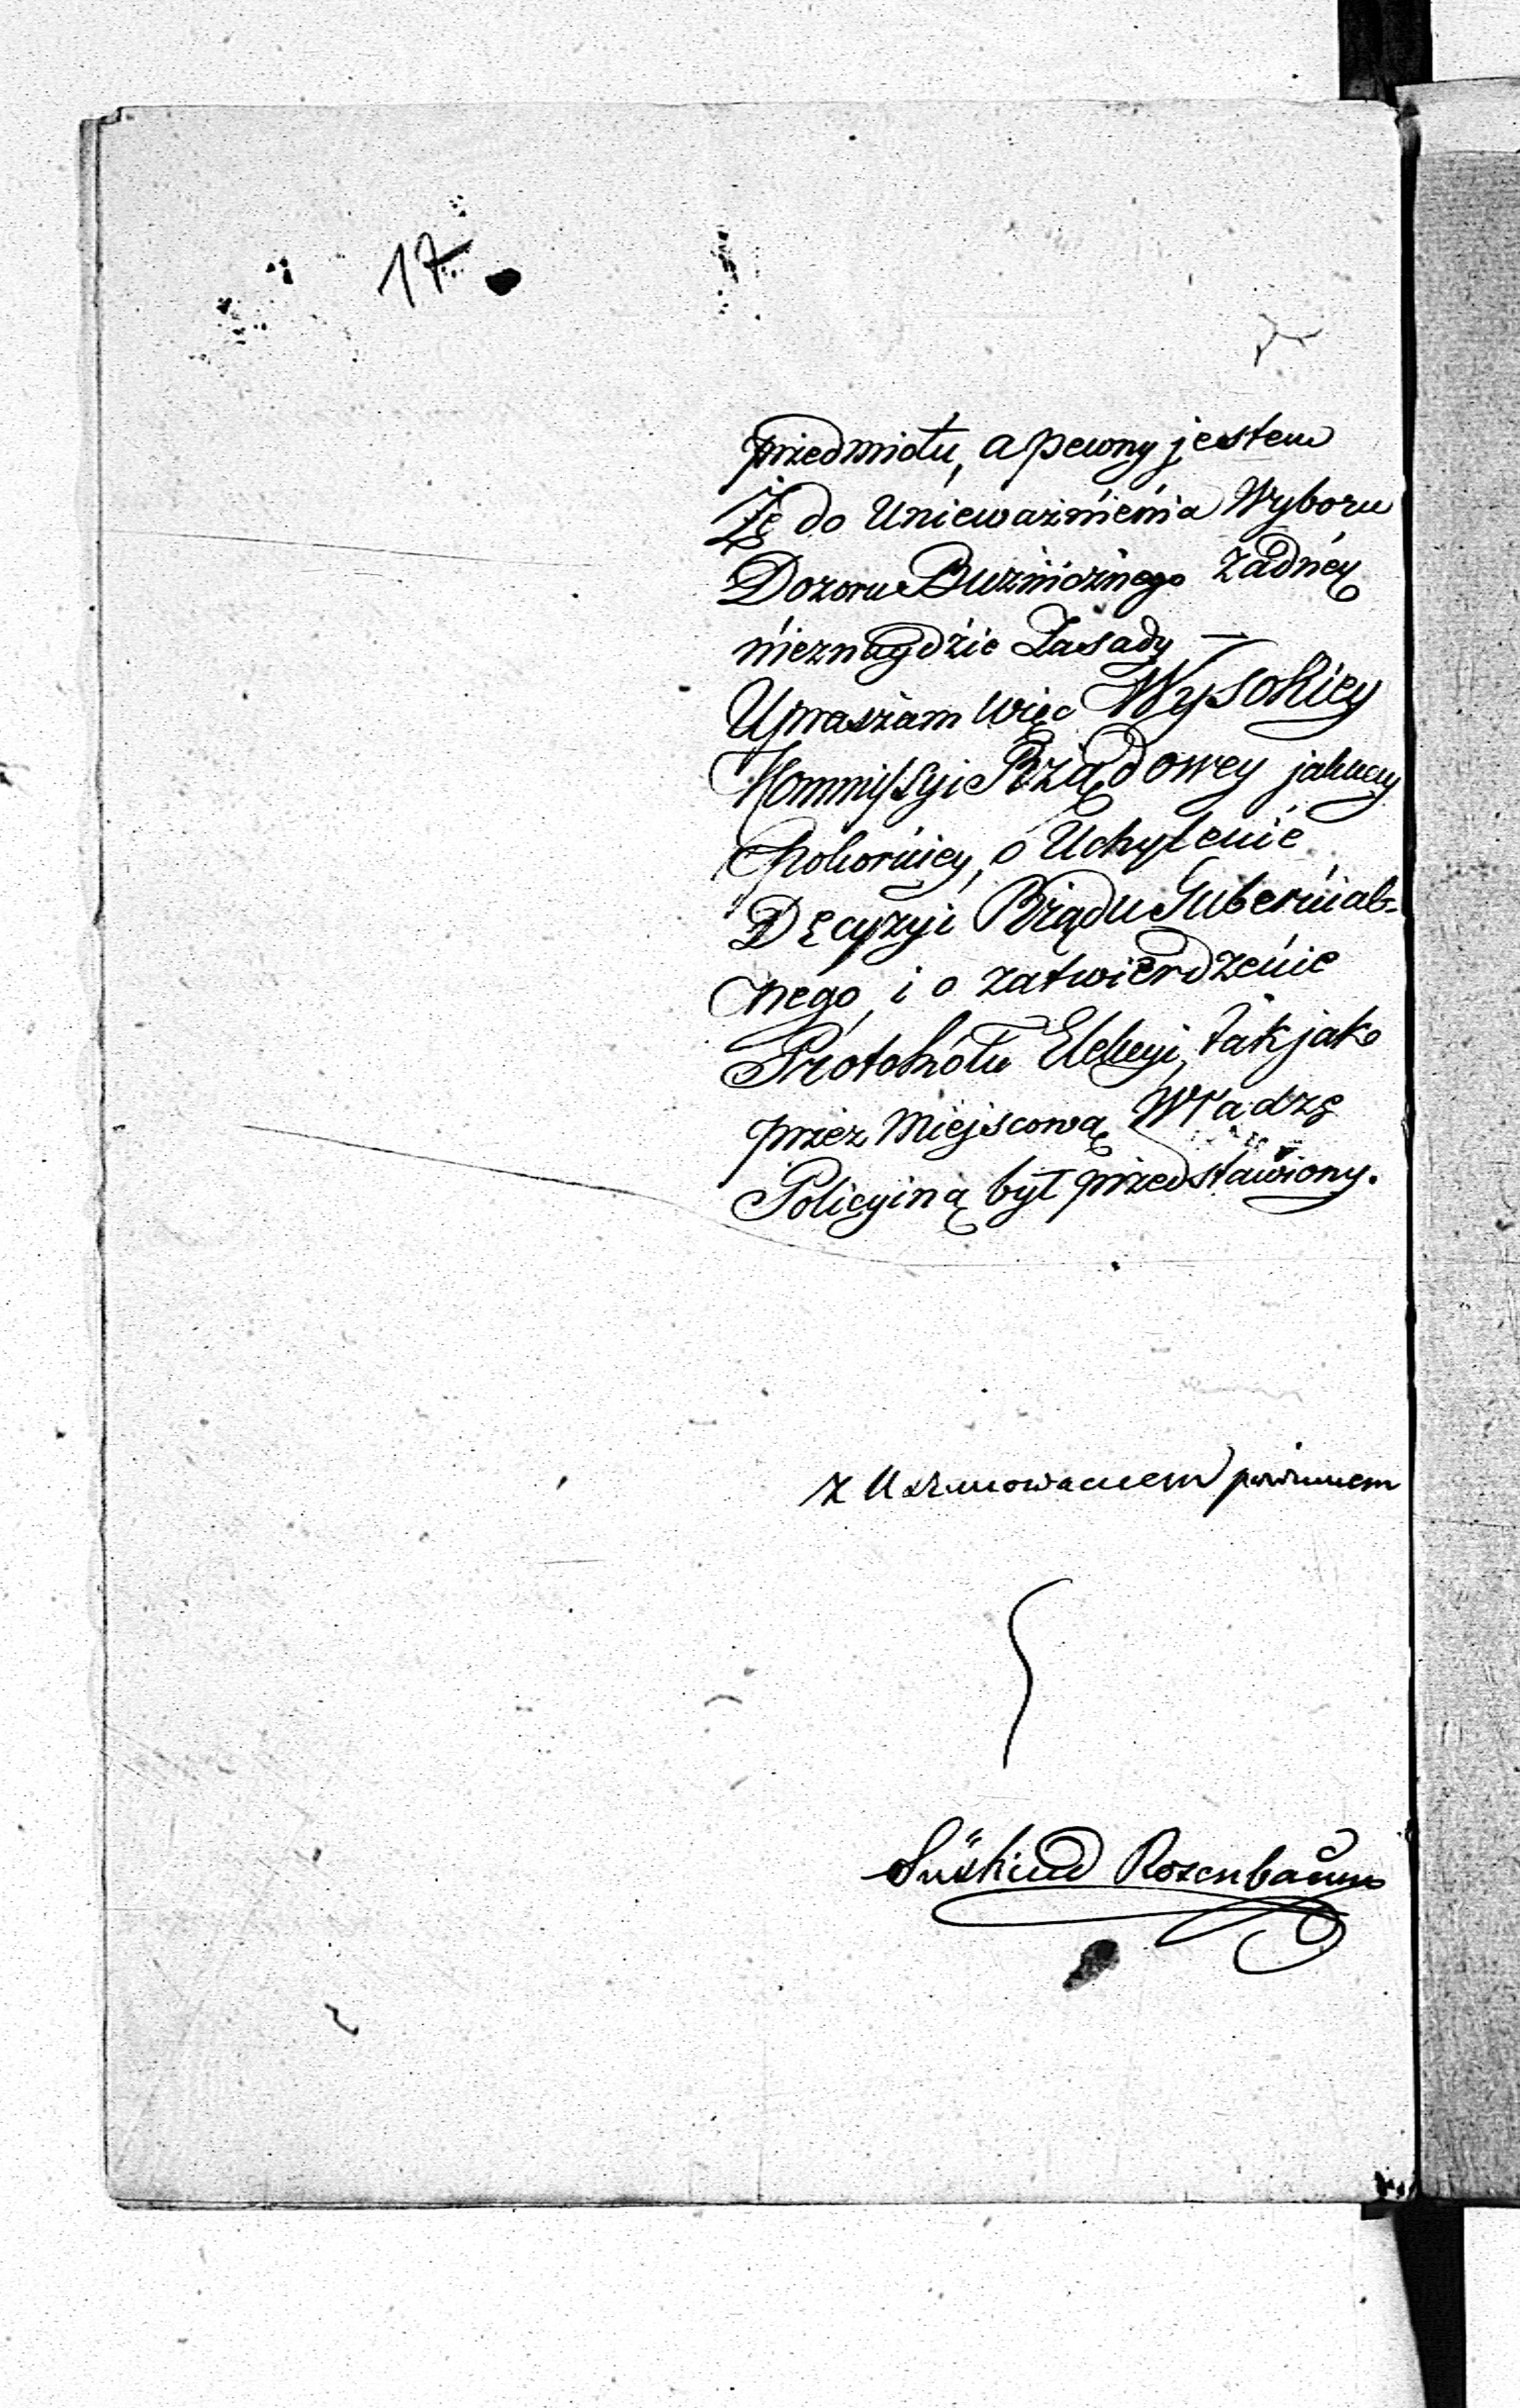 17
przedmiotu, a pewny jestem
Żę do Unieważnienia Wyboru
Dozoru Buźnicznego żadney
nieznaydzie Zasady —
Upraszam więc Wysokiey
Kommissyi Rządowey jaknay
pokorniey, o Uchylenie
Decyzyi Rządu Gubernial-
nego, i o zatwierdzenie
Protokołu Elekcyi, tak jak
przez Miejscową Władzę
Policyiną był przedstawiony.
z Uszanowaniem powinnem
Süskind Rosenbaum